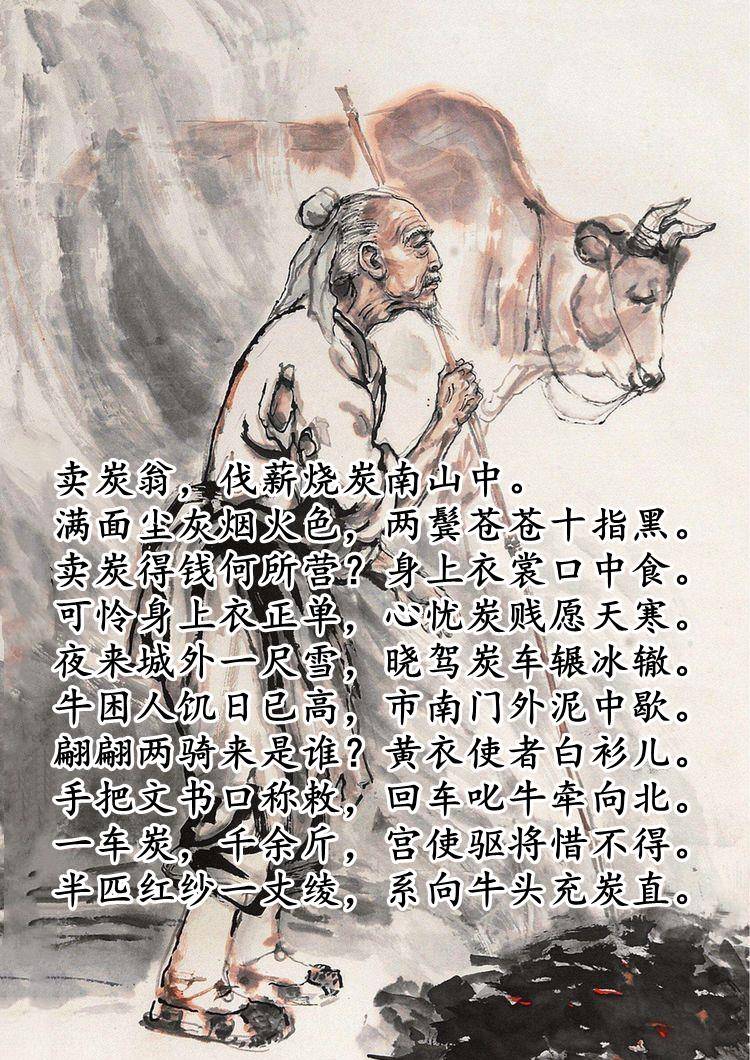 卖炭翁，伐薪烧炭南山中。
满面尘灰烟火色，两鬓苍苍十指黑。
卖炭得钱何所营？身上衣裳口中食。
可怜身上衣正单，心忧炭贱愿天寒。
夜来城外一尺雪，晓驾炭车辗冰辙。
牛困人饥日已高，市南门外泥中歇。
翩翩两骑来是谁？黄衣使者白衫儿。
手把文书口称敕，回车叱牛牵向北。
一车炭，千余斤，宫使驱将惜不得。
半匹红纱一丈绫，系向牛头充炭直。